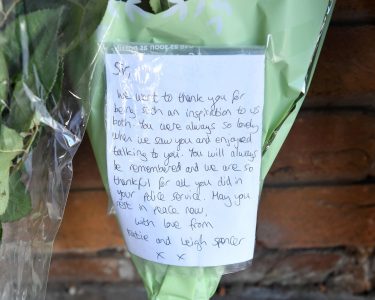 Sir,
We want to thank you for
being such an inspiration to us
both. You were always so lovely
when we saw you and enjoyed
talking to you. You will always
be remembered and we are so
thankful for all you did in
your police service. May you
rest in peace now,
with love from
Katie and Leigh Spencer
x x